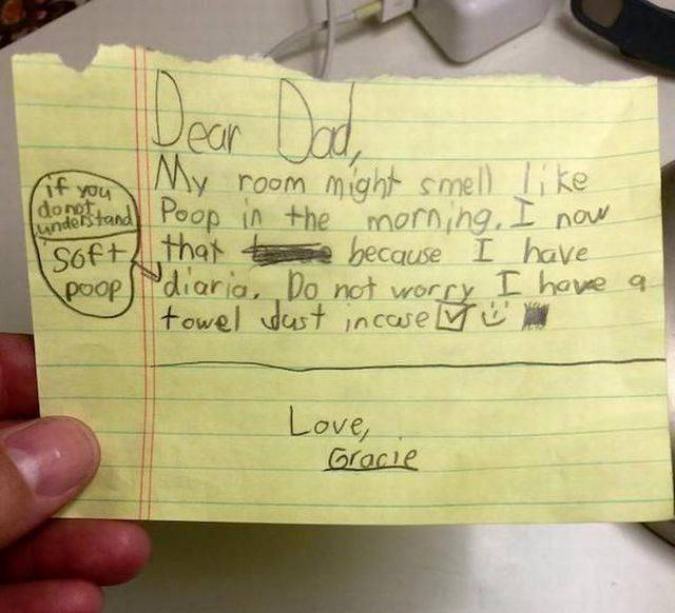 Dear Dad,
My room might smell like
Poop in the morning. I now
that because I have
diaria. Do not worry I have a
towel Just incase
if you
do not
understand
soft
poop
Love,
Gracie